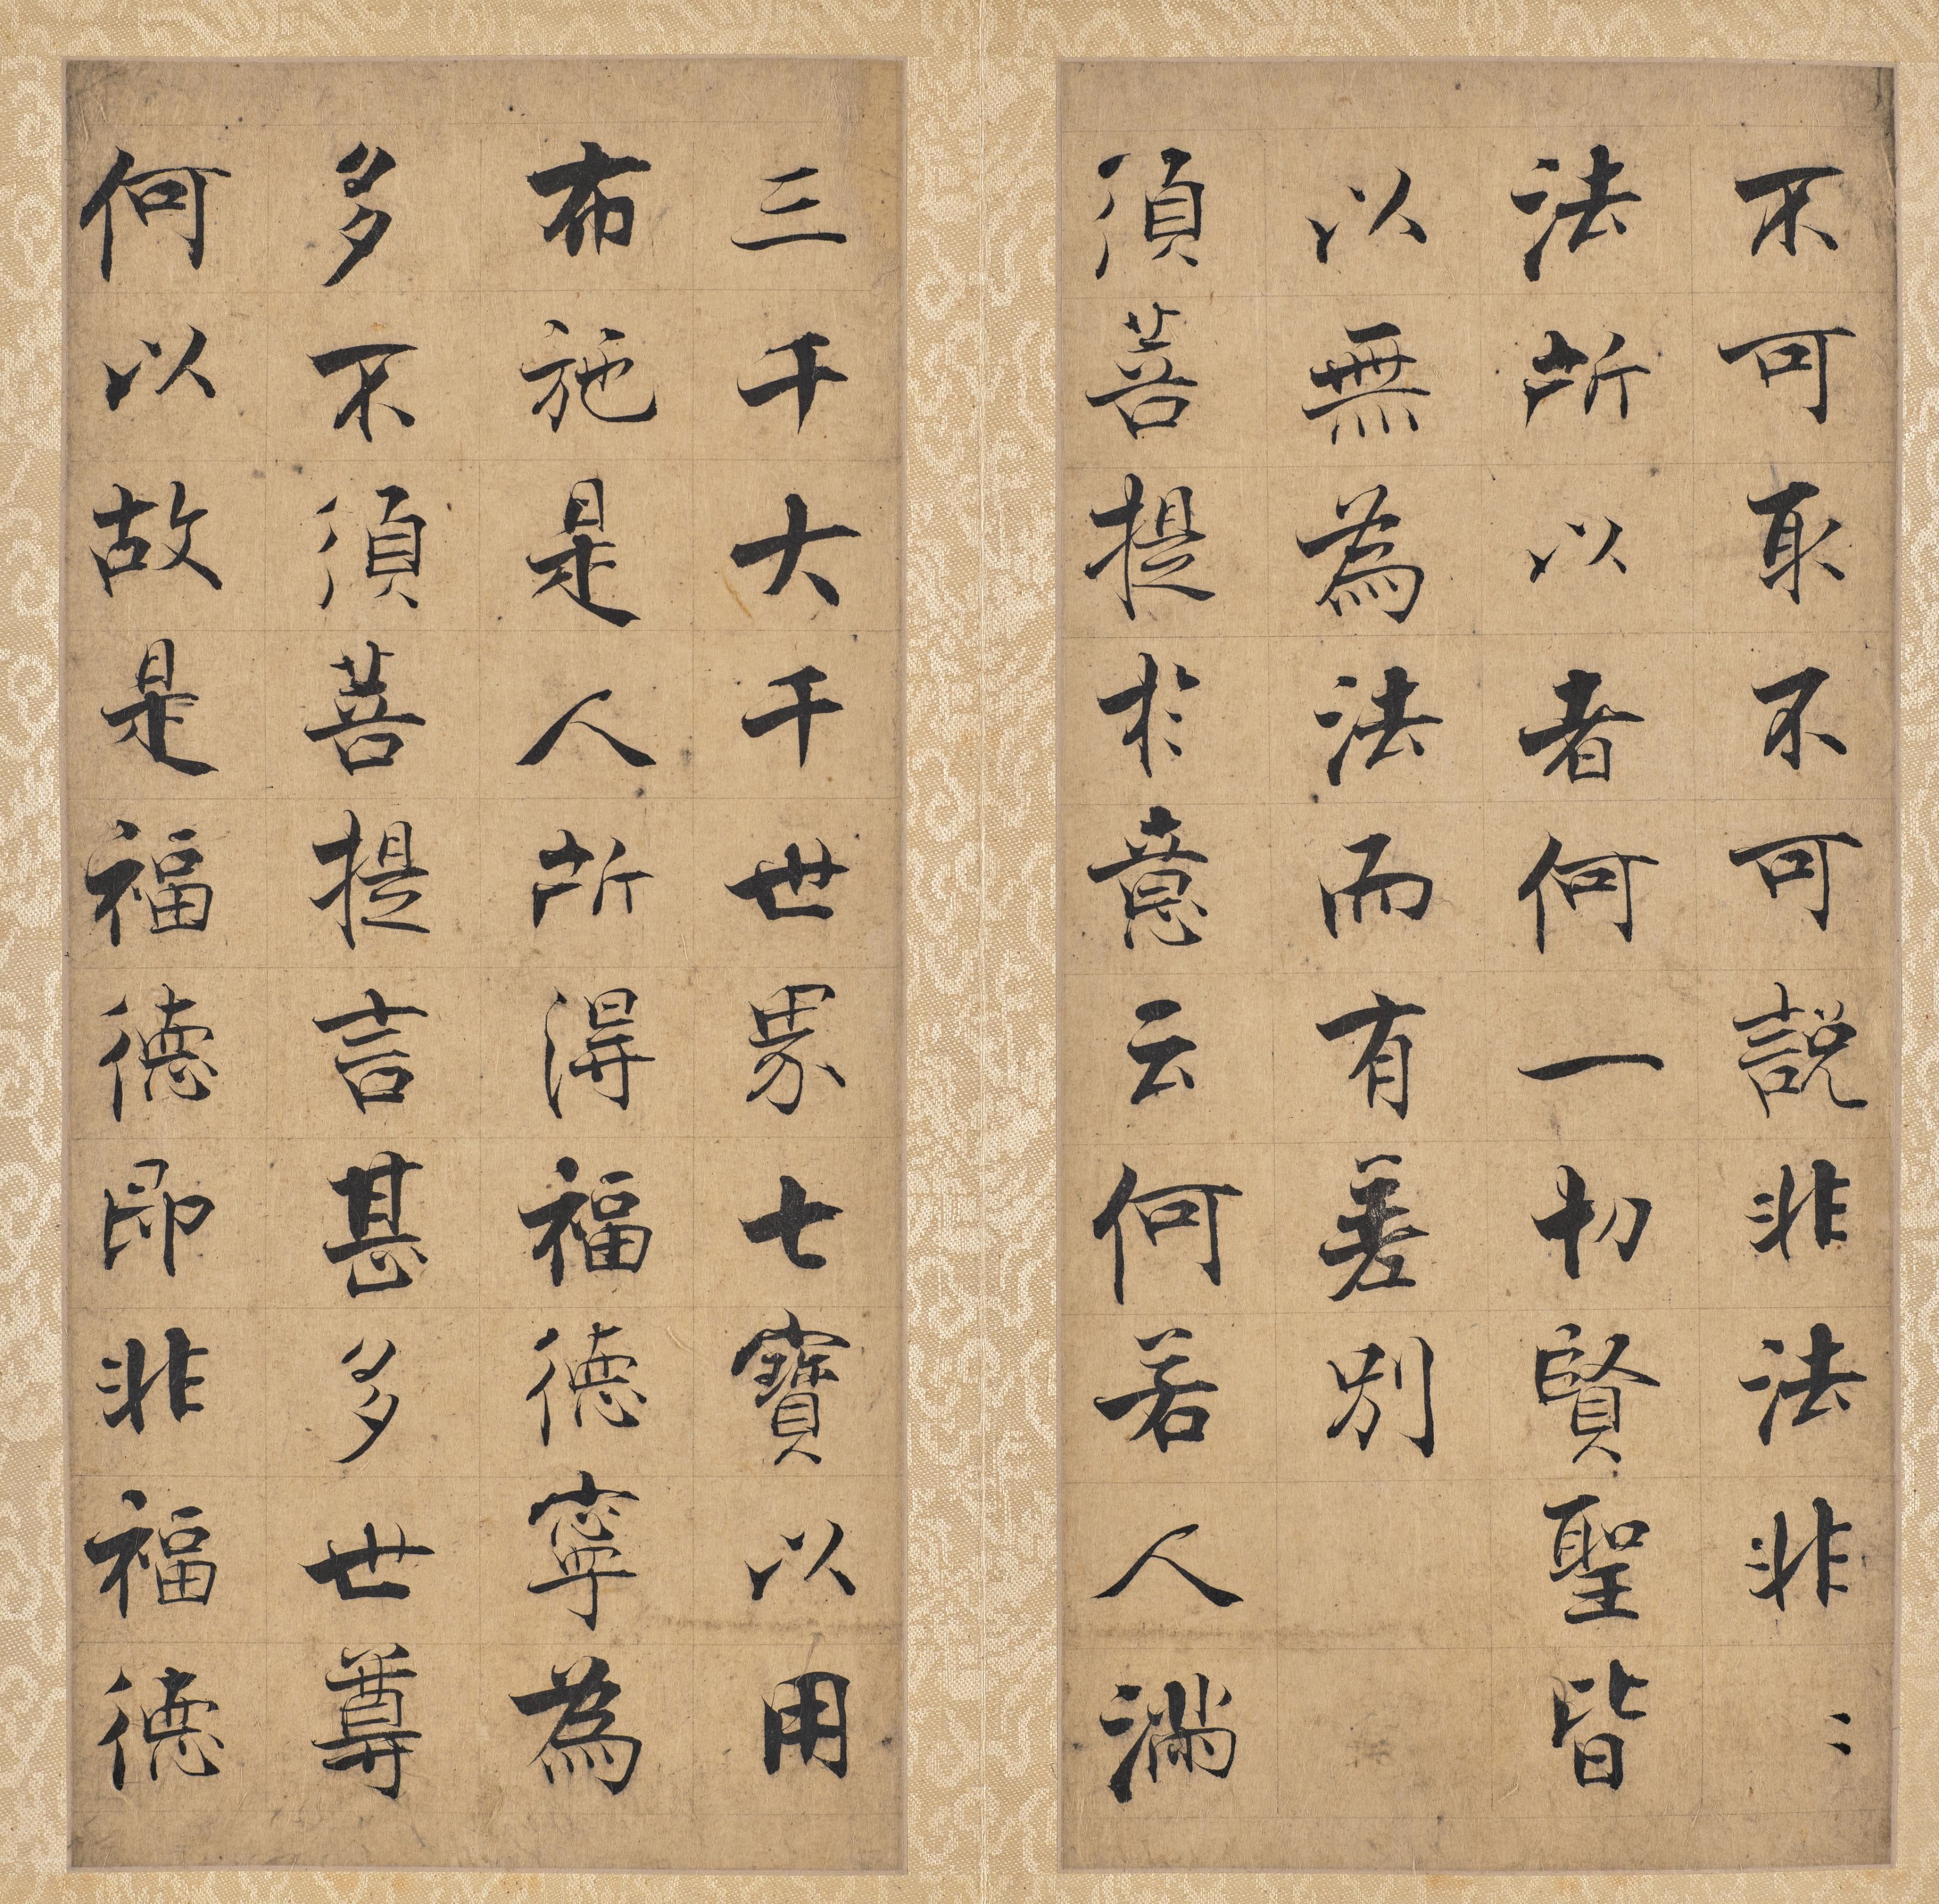 不可取不可說非法非〻
法所以者何一切賢聖皆
以無為法而有差別
須菩提於意云何若人滿
三千大千世界七寶以用
布施是人所得福德寧為
多不須菩提言甚多世尊
何以故是福德即非福德